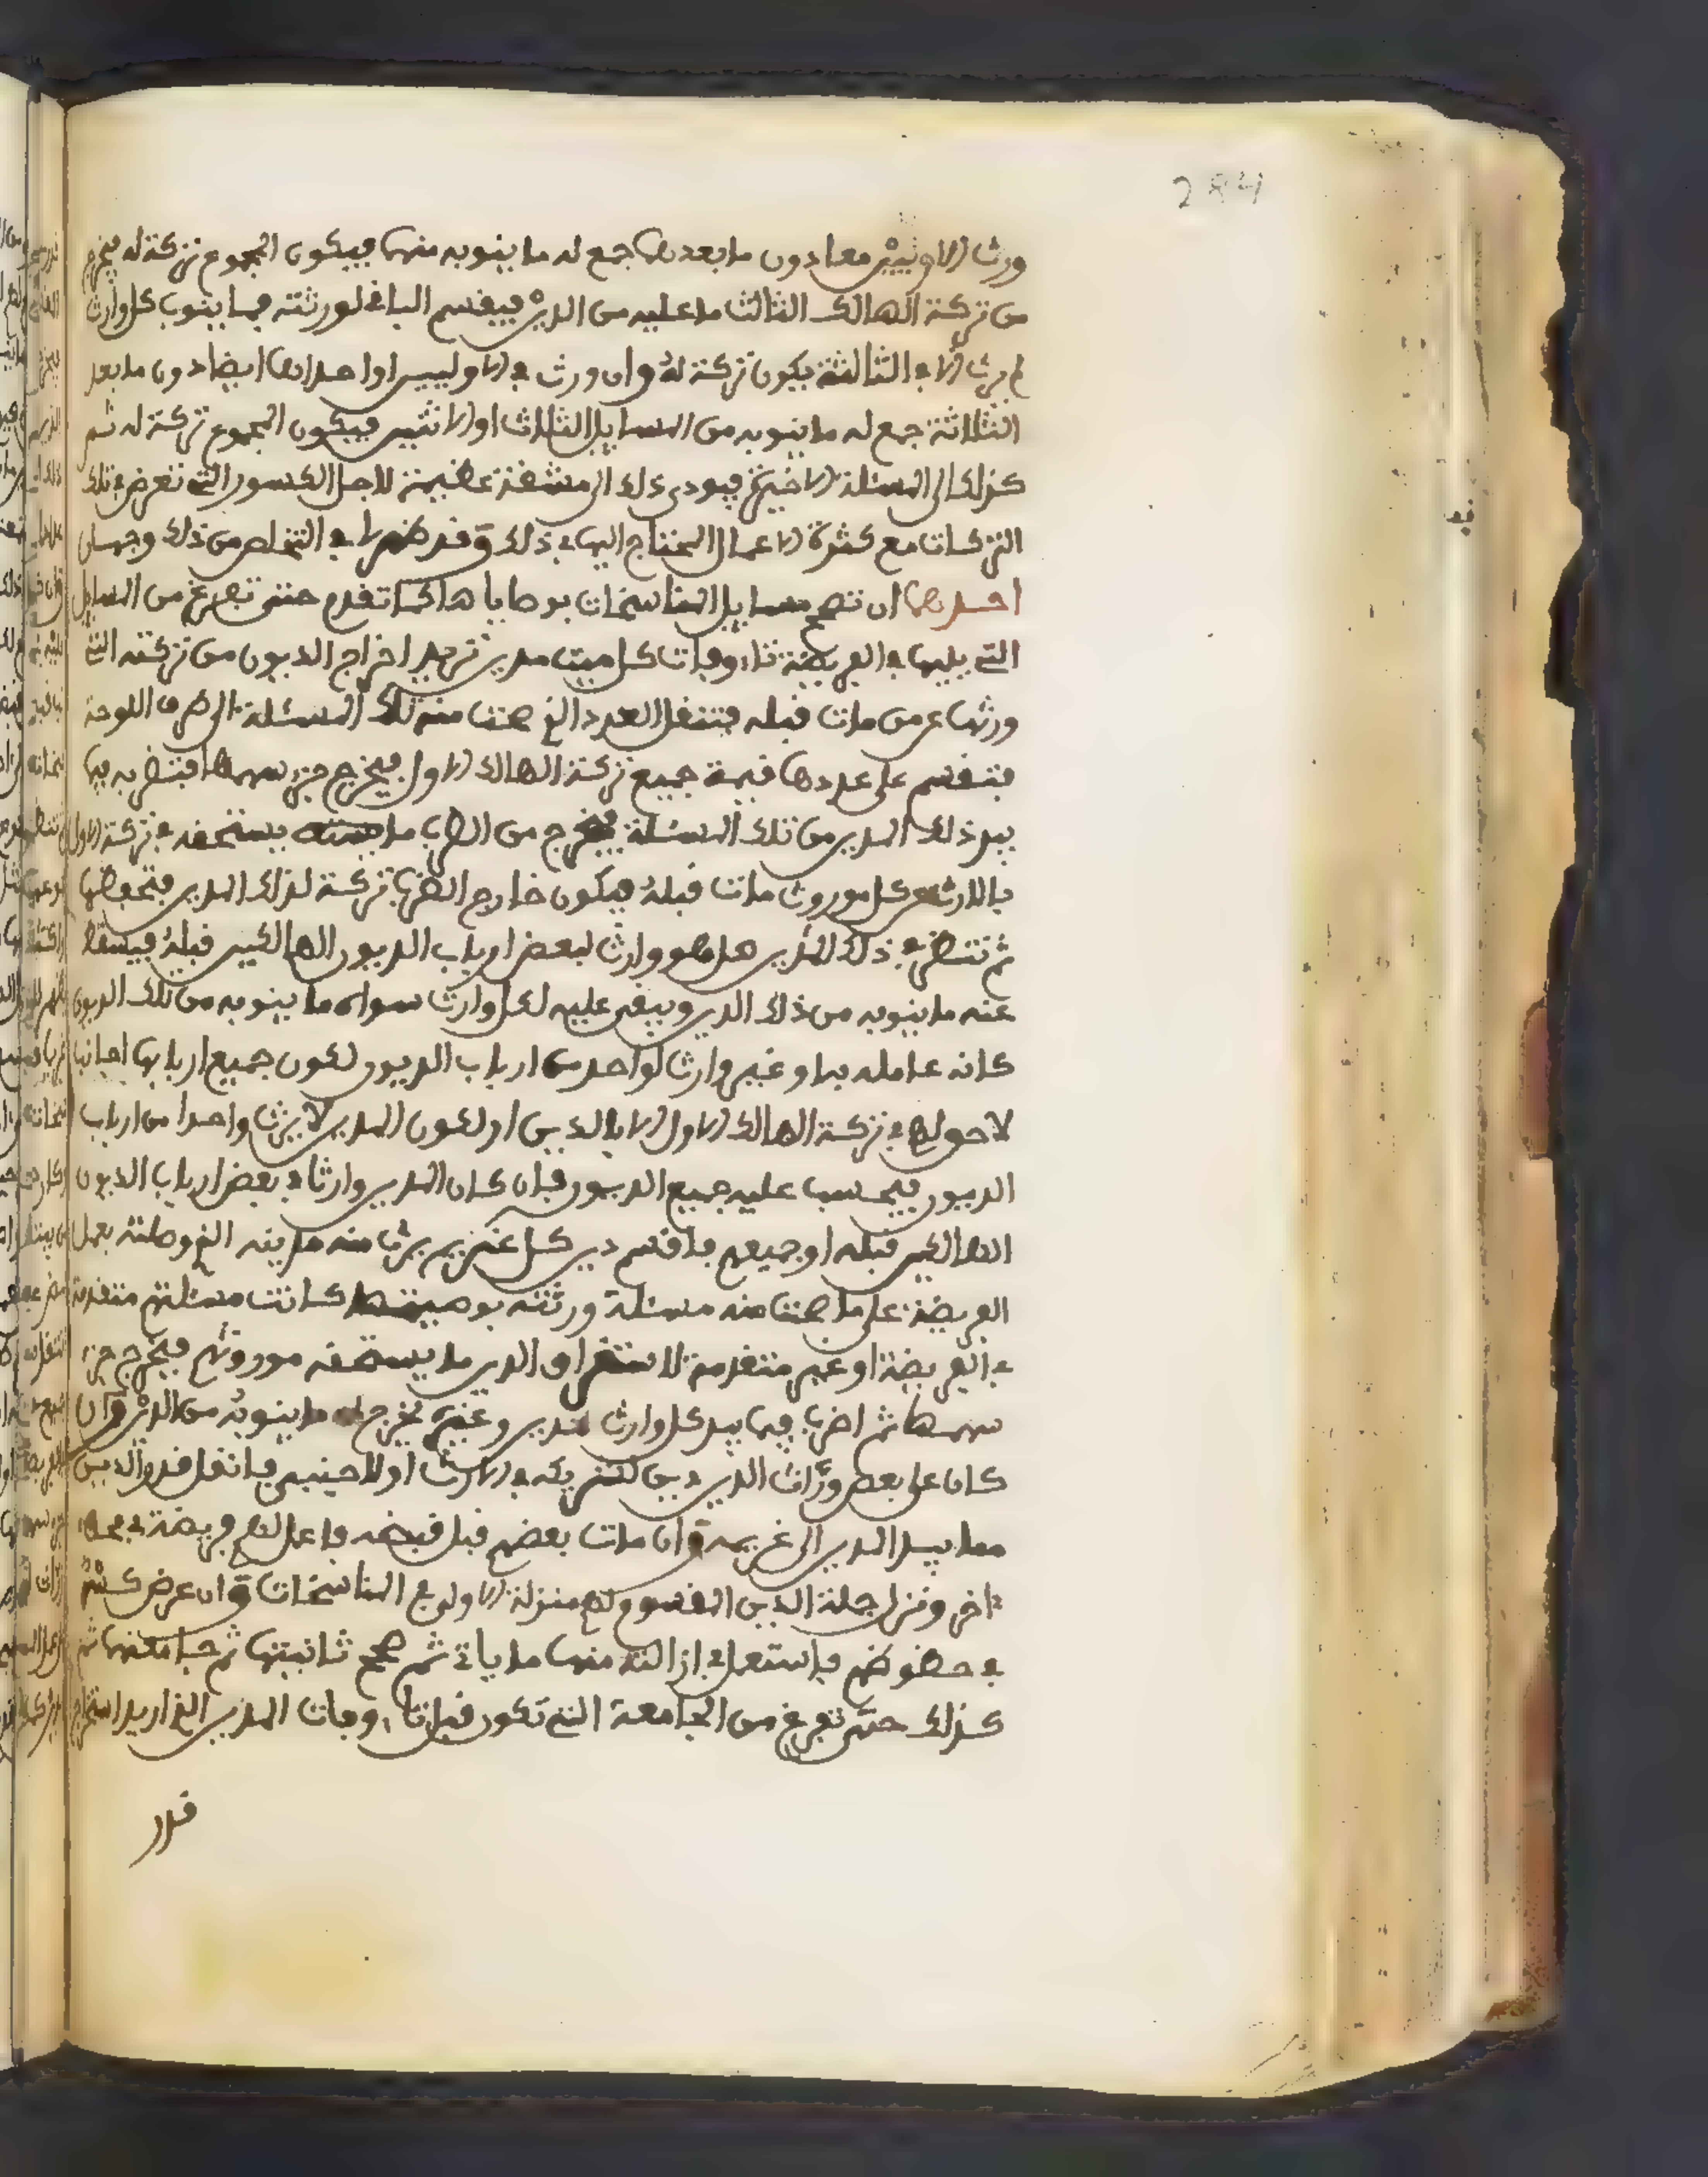 284
ورث الاوليين معا دون ما بعدهما جمع له ما ينوبه منهما فيكون المجموع تركة له فيخرج
من تركة الهالك الثالث ما عليه من الدين فيقسم الباقي لورثته فما ينوب كل وارث
لم يرث الا في الثالثة يكون تركة له وان ورث في الاوليين او احداهما ايضا دون ما بعد
الثلاثة جمع له ما ينوبه من المسايل الثلاث او الاثنين فيكون المجموع تركة له ثم
كذلك الى المسئلة الاخيرة فيودي ذلك الى مشقة عظيمة لاجل الكسور التي تعرض في تلك
التركات مع كثرة الاعمال المحتاج اليها في ذلك وقد ظهر لي في التخلص من ذلك وجهان
احدهما ان تصح مسايل المناسخات بوصاياها كما تقدم حتى تفرغ من المسايل
التي يليها في الفريضة وفات كل ميت مدين تريد اخراج الديون من تركته التي
ورثها عن من مات قبله فتنقل العدد الذي صحت منه تلك المسئلة الى طرف اللوحة
فتقسم على عددها قيمة جميع تركة الهالك الاول فيخرج جزء سهمها فتضربه فيما
بيد ذلك المدين من تلك المسئلة فيخرج من الضرب ما يستحقه في تركة الاول
بالارث عن كل موروث مات قبله فيكون خارج الضرب تركة لذلك المدين فتحفظها
ثم تنظر في ذلك المدين هل هو وارث لبعض ارباب الديون الهالكين قبله فيسقط
عنه ما ينوبه من ذلك الدين ويبقى عليه لكل وارث سواه ما ينوبه من تلك الديون
كانه عامله بها او غير وارث لواحد من ارباب الديون لكون جميع اربابها اجانب
لا حق لهم في تركة الهالك الاول الا بالدين او لكون المدين لا يرث واحدا من ارباب
الديون فيحسب عليه جميع الديون فان كان المدين وارثا في بعض ارباب الديون
الهالكين قبله او جميعهم فاقسم دين كل غريم يرث منه مدينه الذي وصلته بعمل
الفريضة على ما صحت منه مسئلة ورثته بوصيته كانت مسئلتهم متقدمة
في الفريضة او غير متقدمة لاستغراق الدين ما يستحقه موروثهم فيخرج جزء
سهمها ثم اضربه فيما بيد كل وارث مدين وغيره يخرج له ما ينوبه من الدين وان
كان على بعض وراث الدين دين لشريكه في الارث او لاجنبي فانقل قدر الدين
مما بيد المدين الى غريمه وان مات بعضهم قبل قبضه فاعمل لهم فريضة في محل
ءاخر ونزل جملة الدين المقسوم لهم منزلة الاولى في المناسخات وان عرض كسر
في حظوظهم فاستعمل في ازالته منها ما ياتي ثم صحح ثانيتها ثم جامعتها ثم
كذلك حتى تفرغ من الجامعة التي تكون قبل وفات المدين الذي اريد استخراج
قدر